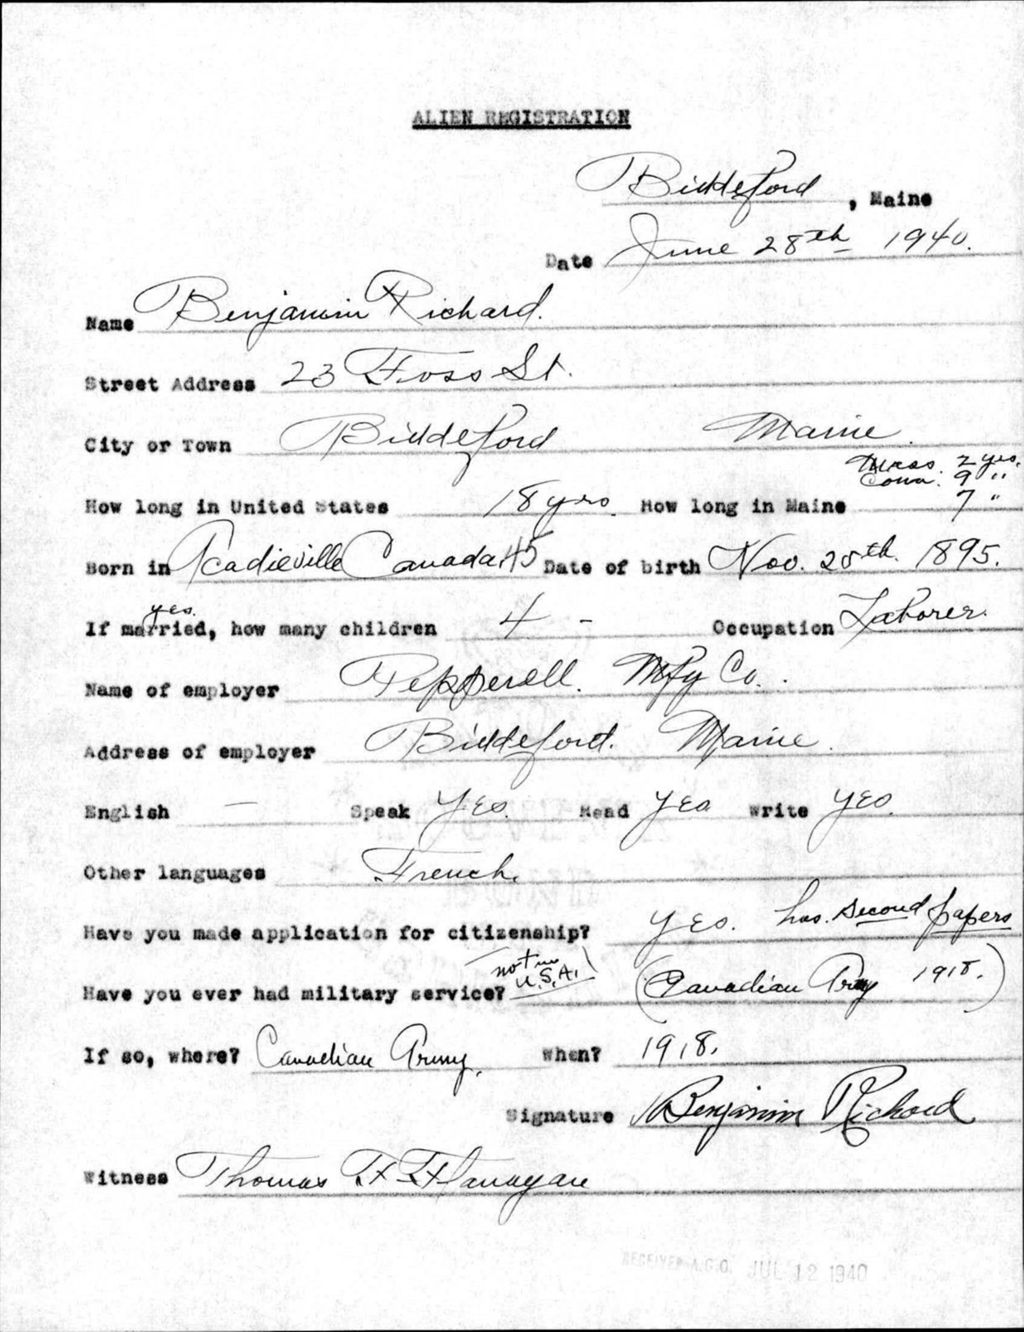 ALIEN REGISTRATION
Biddeford, Maine
Date June 28th 1940.
Name Benjamin Richard.
Street Address 23 Foss St.
City or Town Biddeford Maine.
Mass. 2 yrs.
Conn. 9 "
How long in United States 18 yrs. How long in Maine 7 "
Born in Acadieville Canada 45 Date of birth Nov. 28th. 1895.
yes.
If married, how many children 4 - Occupation Laborer.
Name of employer Pepperell. Mfg Co.
Address of employer Biddeford. Maine.
English — Speak Yes. Read Yes Write Yes.
Other languages French.
Have you made application for citizenship? Yes. has second papers
not in
U.S.A.
Have you ever had military service? (Canadian Army 1918.)
If so, where? Canadian Army. When? 1918.
Signature Benjamin Richard
Witness Thomas F Flanagan
RECEIVED A.G.O. JUL 12 1940